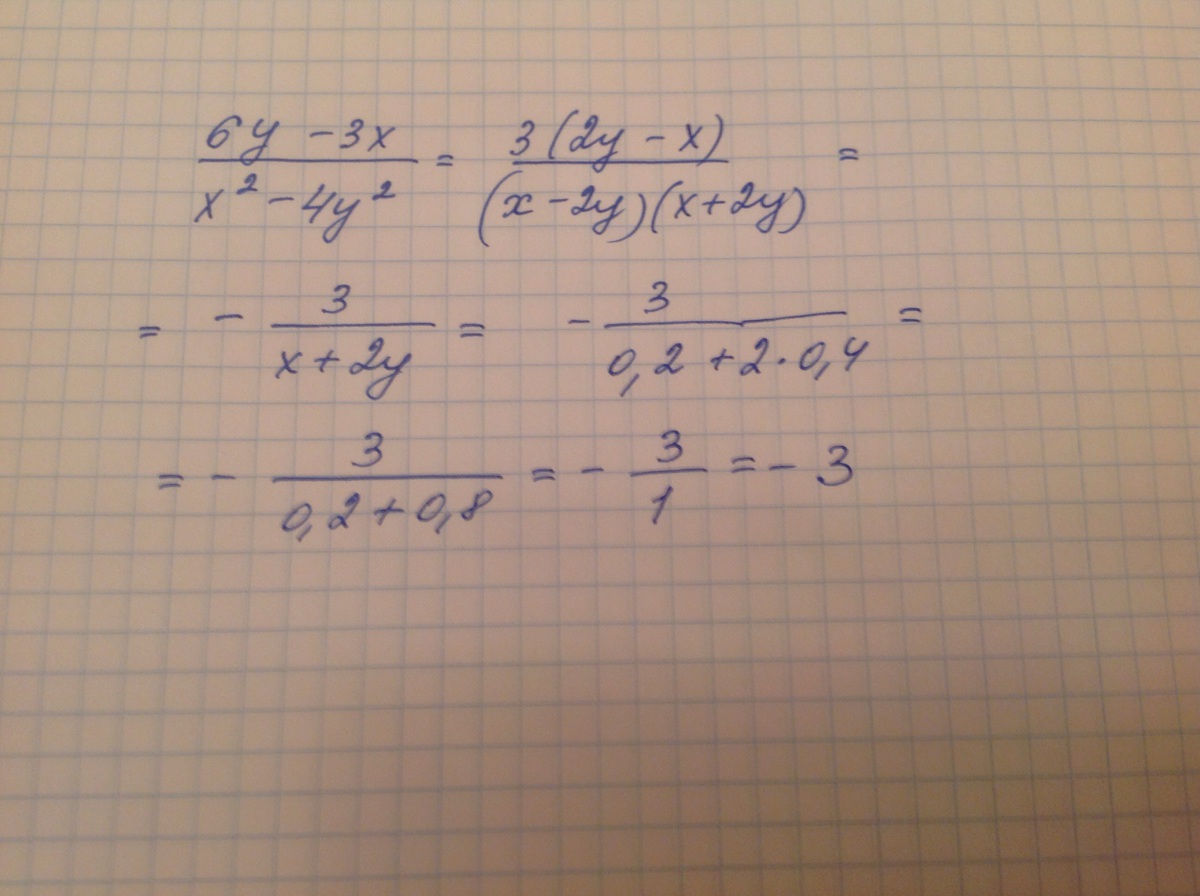 (6y - 3x)/(x² - 4y²) = 3(2y - x)/((x - 2y)(x + 2y)) =
= - 3/(x + 2y) = - 3/(0,2 + 2·0,4) =
= - 3/(0,2 + 0,8) = - 3/1 = - 3